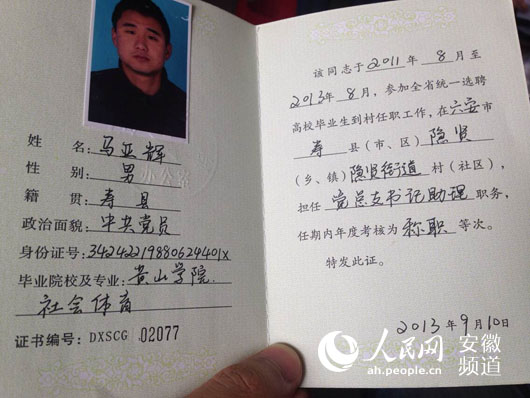 姓名:马亚辉
性别:男
籍贯:寿县
政治面貌:中共党员
身份证号:34242219880624401X
毕业院校及专业:黄山学院
社会体育
证书编号:DXSCG 02077
该同志于2011年8月至
2013年8月,参加全省统一选聘
高校毕业生到村任职工作,在六安市
寿县(市、区)隐贤
(乡、镇)隐贤街道村(社区),
担任党总支书记助理职务,
任期内年度考核为称职等次。
特发此证。
2013年9月10日
人民网 安徽频道
ah.people.cn